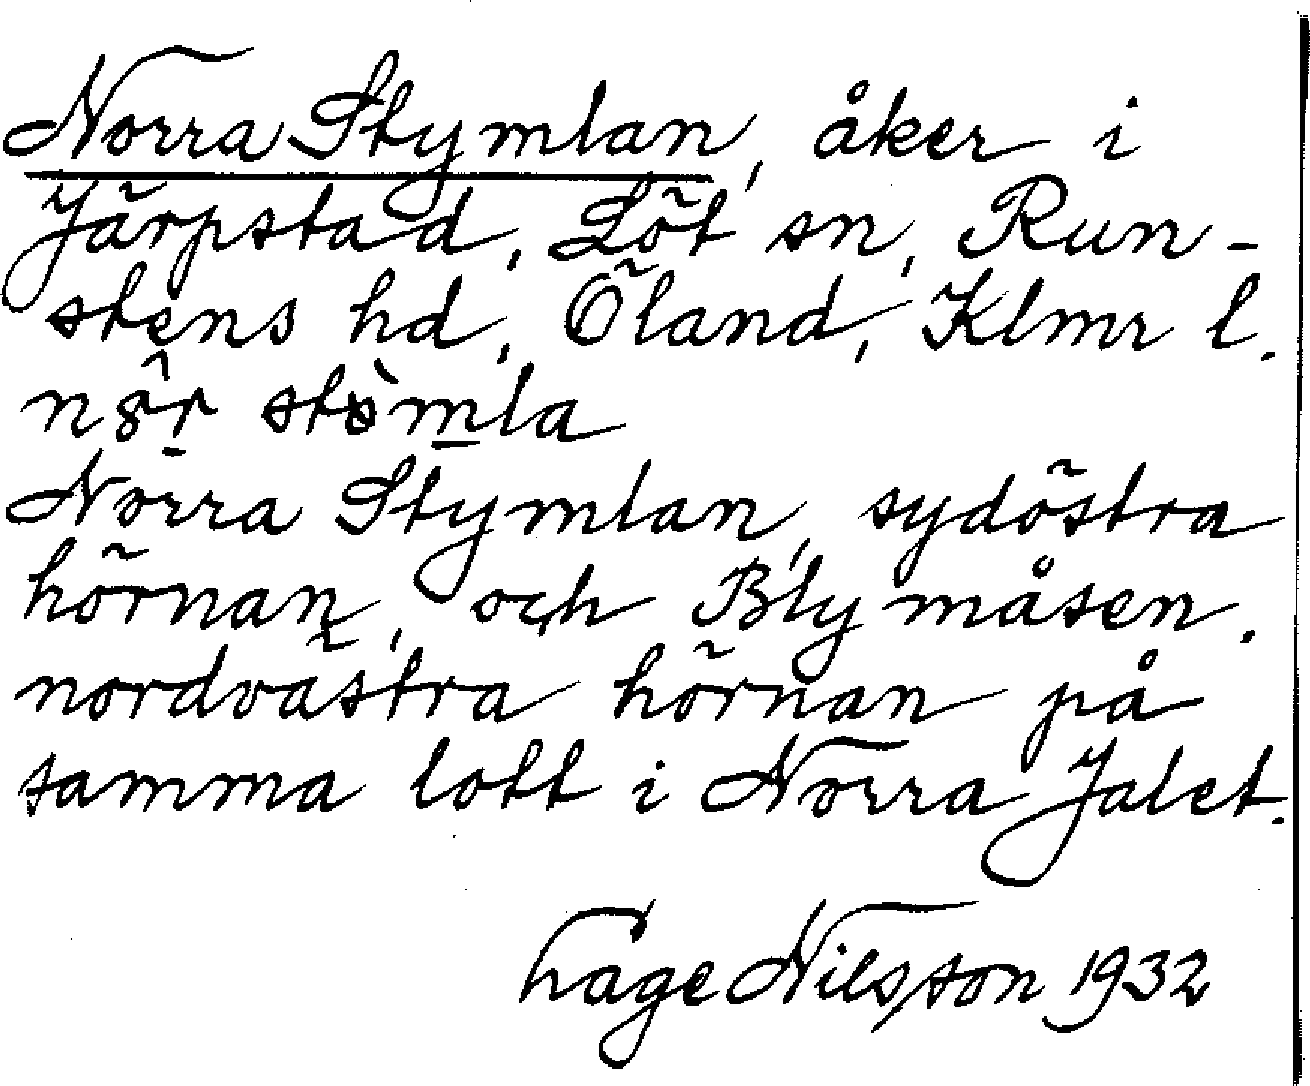 Norra Stymlan, åker i
Järpstad, Löt sn, Run-
stens hd, Öland, Klmr l.
Norra Stymlan, sydöstra
hörnan, och Blymåsen,
nordvästra hörnan på
samma lott i Norra Jalet.
Håge Nilsson 1932